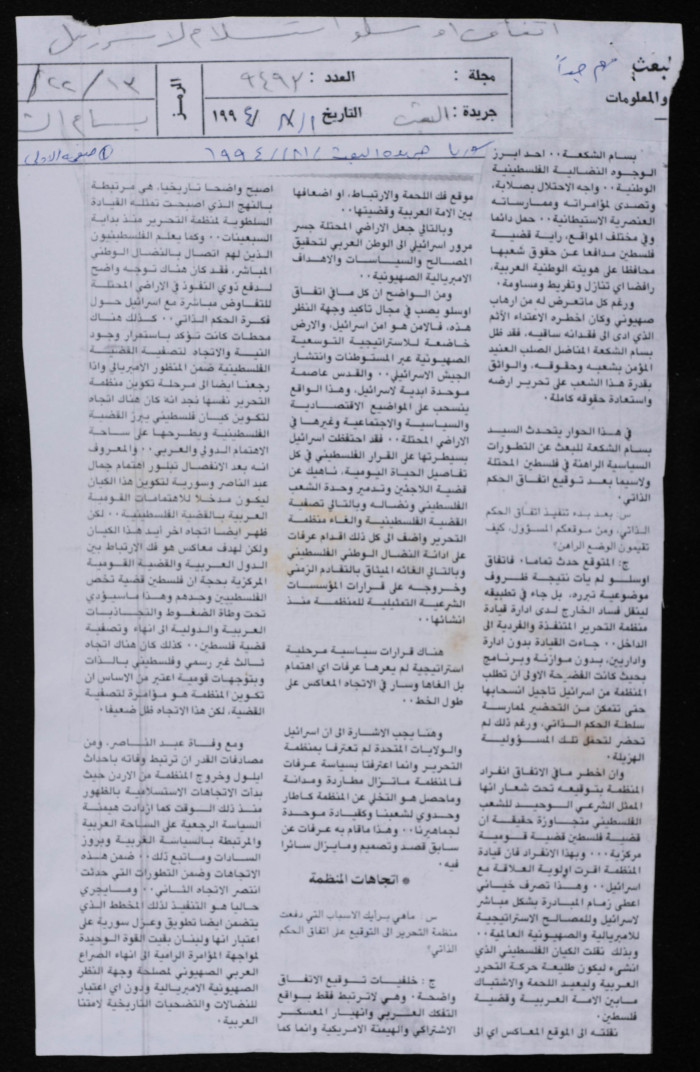 اتفاق اوسلو استسلام لاسرائيل
لبعث:
مهم جداً
والمعلومات
مجلة :
العدد : ٩٤٩٢
الرمز
١٣/٢٢/
جريدة : البعث
التاريخ ١/٨/١٩٩٤
بسام الش
سوريا جريدة البعث ١/٨/١٩٩٤
① صفحة الاولى
بسام الشكعة.. احد ابرز
الوجوه النضالية الفلسطينية
الوطنية.. واجه الاحتلال بصلابة،
وتصدى لمؤامراته وممارساته
العنصرية الاستيطانية.. حمل دائما
وفي مختلف المواقع، راية قضية
فلسطين مدافعا عن حقوق شعبها
محافظا على هويته الوطنية العربية،
رافضا اي تنازل وتفريط ومساومة.
ورغم كل ماتعرض له من ارهاب
صهيوني وكان اخطره الاعتداء الآثم
الذي ادى الى فقدانه ساقيه، فقد ظل
بسام الشكعة المناضل الصلب العنيد
المؤمن بشعبه وحقوقه، والواثق
بقدرة هذا الشعب على تحرير ارضه
واستعادة حقوقه كاملة.
في هذا الحوار يتحدث السيد
بسام الشكعة للبعث عن التطورات
السياسية الراهنة في فلسطين المحتلة
ولاسيما بعد توقيع اتفاق الحكم
الذاتي.
س. بعد بدء تنفيذ اتفاق الحكم
الذاتي، ومن موقعكم المسؤول، كيف
تقيمون الوضع الراهن؟
ج: المتوقع حدث تماما، فاتفاق
اوسلو لم يأت نتيجة ظروف
موضوعية تبرره، بل جاء في تطبيقه
لينقل فساد الخارج لدى ادارة قيادة
منظمة التحرير المتنفذة والفردية الى
الداخل.. جاءت القيادة بدون ادارة
واداريين، بدون موازنة وبرنامج
بحيث كانت الفضيحة الاولى ان تطلب
المنظمة من اسرائيل تأجيل انسحابها
حتى تتمكن من التحضير لممارسة
سلطة الحكم الذاتي، ورغم ذلك لم
تحضر لتحمل تلك المسؤولية
الهزيلة.
وان اخطر مافي الاتفاق انفراد
المنظمة بتوقيعه تحت شعار انها
الممثل الشرعي الوحيد للشعب
الفلسطيني متجاوزة حقيقة ان
قضية فلسطين قضية قومية
مركزية... وبهذا الانفراد فان قيادة
المنظمة اقرت اولوية العلاقة مع
اسرائيل.. وهذا تصرف خياني
اعطى زمام المبادرة بشكل مباشر
لاسرائيل وللمصالح الاستراتيجية
للامبريالية والصهيونية العالمية..
وبذلك نقلت الكيان الفلسطيني الذي
انشىء ليكون طليعة حركة التحرر
العربية وليعيد اللحمة والاشتباك
مابين الامة العربية وقضية
فلسطين.
نقلته الى الموقع المعاكس اي الى
موقع فك اللحمة والارتباط، او اضعافها
بين الامة العربية وقضيتها..
وبالتالي جعل الاراضي المحتلة جسر
مرور اسرائيلي الى الوطن العربي لتحقيق
المصالح والسياسات والاهداف
الامبريالية الصهيونية..
ومن الواضح ان كل مافي اتفاق
اوسلو يصب في مجال تأكيد وجهة النظر
هذه، فالامن هو امن اسرائيل، والارض
خاضعة للاستراتيجية التوسعية
الصهيونية عبر المستوطنات وانتشار
الجيش الاسرائيلي.. والقدس عاصمة
موحدة ابدية لاسرائيل، وهذا الواقع
ينسحب على المواضيع الاقتصادية
والسياسية والاجتماعية وغيرها في
الاراضي المحتلة.. فقد احتفظت اسرائيل
بسيطرتها على القرار الفلسطيني في كل
تفاصيل الحياة اليومية، ناهيك عن
قضية اللاجئين وتدمير وحدة الشعب
الفلسطيني ونضاله وبالتالي تصفية
القضية الفلسطينية والغاء منظمة
التحرير واضف الى كل ذلك اقدام عرفات
على ادانة النضال الوطني الفلسطيني
وبالتالي الغائه الميثاق بالتقادم الزمني
وخروجه على قرارات المؤسسات
الشرعية التمثيلية للمنظمة منذ
انشائها..
هناك قرارات سياسية مرحلية
استراتيجية لم يعرها عرفات اي اهتمام
بل الغاها وسار في الاتجاه المعاكس على
طول الخط..
وهنا يجب الاشارة الى ان اسرائيل
والولايات المتحدة لم تعترفا بمنظمة
التحرير وانما اعترفتا بسياسة عرفات
فالمنظمة ماتزال مطاردة ومدانة
وماحصل هو التخلي عن المنظمة كاطار
وحدوي لشعبنا وكقيادة موحدة
لجماهيرنا.. وهذا ماقام به عرفات عن
سابق قصد وتصميم ومايزال سائرا
فيه.
* اتجاهات المنظمة
س : ماهي برأيك الاسباب التي دفعت
منظمة التحرير الى التوقيع على اتفاق الحكم
الذاتي؟
ج : خلفيات توقيع الاتفاق
واضحة.. وهي لاترتبط فقط بواقع
التفكك العربي وانهيار المعسكر
الاشتراكي والهيمنة الامريكية وانما كما
اصبح واضحا تاريخيا، هي مرتبطة
بالنهج الذي اصبحت تمثله القيادة
السلطوية لمنظمة التحرير منذ بداية
السبعينات.. وكما يعلم الفلسطينيون
الذين لهم اتصال بالنضال الوطني
المباشر، فقد كان هناك توجه واضح
لدفع ذوي النفوذ في الاراضي المحتلة
للتفاوض مباشرة مع اسرائيل حول
فكرة الحكم الذاتي.. كذلك هناك
محطات كانت تؤكد باستمرار وجود
النية والاتجاه لتصفية القضية
الفلسطينية ضمن المنظور الامبريالي واذا
رجعنا ايضا الى مرحلة تكوين منظمة
التحرير نفسها نجد انه كان هناك اتجاه
لتكوين كيان فلسطيني يبرز القضية
الفلسطينية ويطرحها على ساحة
الاهتمام الدولي والعربي.. والمعروف
انه بعد الانفصال تبلور اهتمام جمال
عبد الناصر وسورية لتكوين هذا الكيان
ليكون مدخلا للاهتمامات القومية
العربية بالقضية الفلسطينية.. لكن
ظهر ايضا اتجاه آخر ايد هذا الكيان
ولكن لهدف معاكس هو فك الارتباط بين
الدول العربية والقضية القومية
المركزية بحجة ان فلسطين قضية تخص
الفلسطينيين وحدهم وهذا ماسيؤدي
تحت وطأة الضغوط والتجاذبات
العربية والدولية الى انهاء وتصفية
قضية فلسطين.. كذلك كان هناك اتجاه
ثالث غير رسمي وفلسطيني بالذات
وبتوجهات قومية اعتبر من الاساس ان
تكوين المنظمة هو مؤامرة لتصفية
القضية، لكن هذا الاتجاه ظل ضعيفا.
ومع وفاة عبد الناصر، ومن
مصادفات القدر ان ترتبط وفاته باحداث
ايلول وخروج المنظمة من الاردن حيث
بدأت الاتجاهات الاستسلامية بالظهور
منذ ذلك الوقت كما ازدادت هيمنة
السياسة الرجعية على الساحة العربية
والمرتبطة بالسياسة الغربية وبروز
السادات وماتبع ذلك.. ضمن هذه
الاتجاهات وضمن التطورات التي حدثت
انتصر الاتجاه الثاني.. ومايجري
حاليا هو التنفيذ لذلك المخطط الذي
يتضمن ايضا تطويق وعزل سورية على
اعتبار انها ولبنان بقيت القوة الوحيدة
لمواجهة المؤامرة الرامية الى انهاء الصراع
العربي الصهيوني لمصلحة وجهة النظر
الصهيونية الامبريالية ودون اي اعتبار
للنضالات والتضحيات التاريخية لامتنا
العربية.